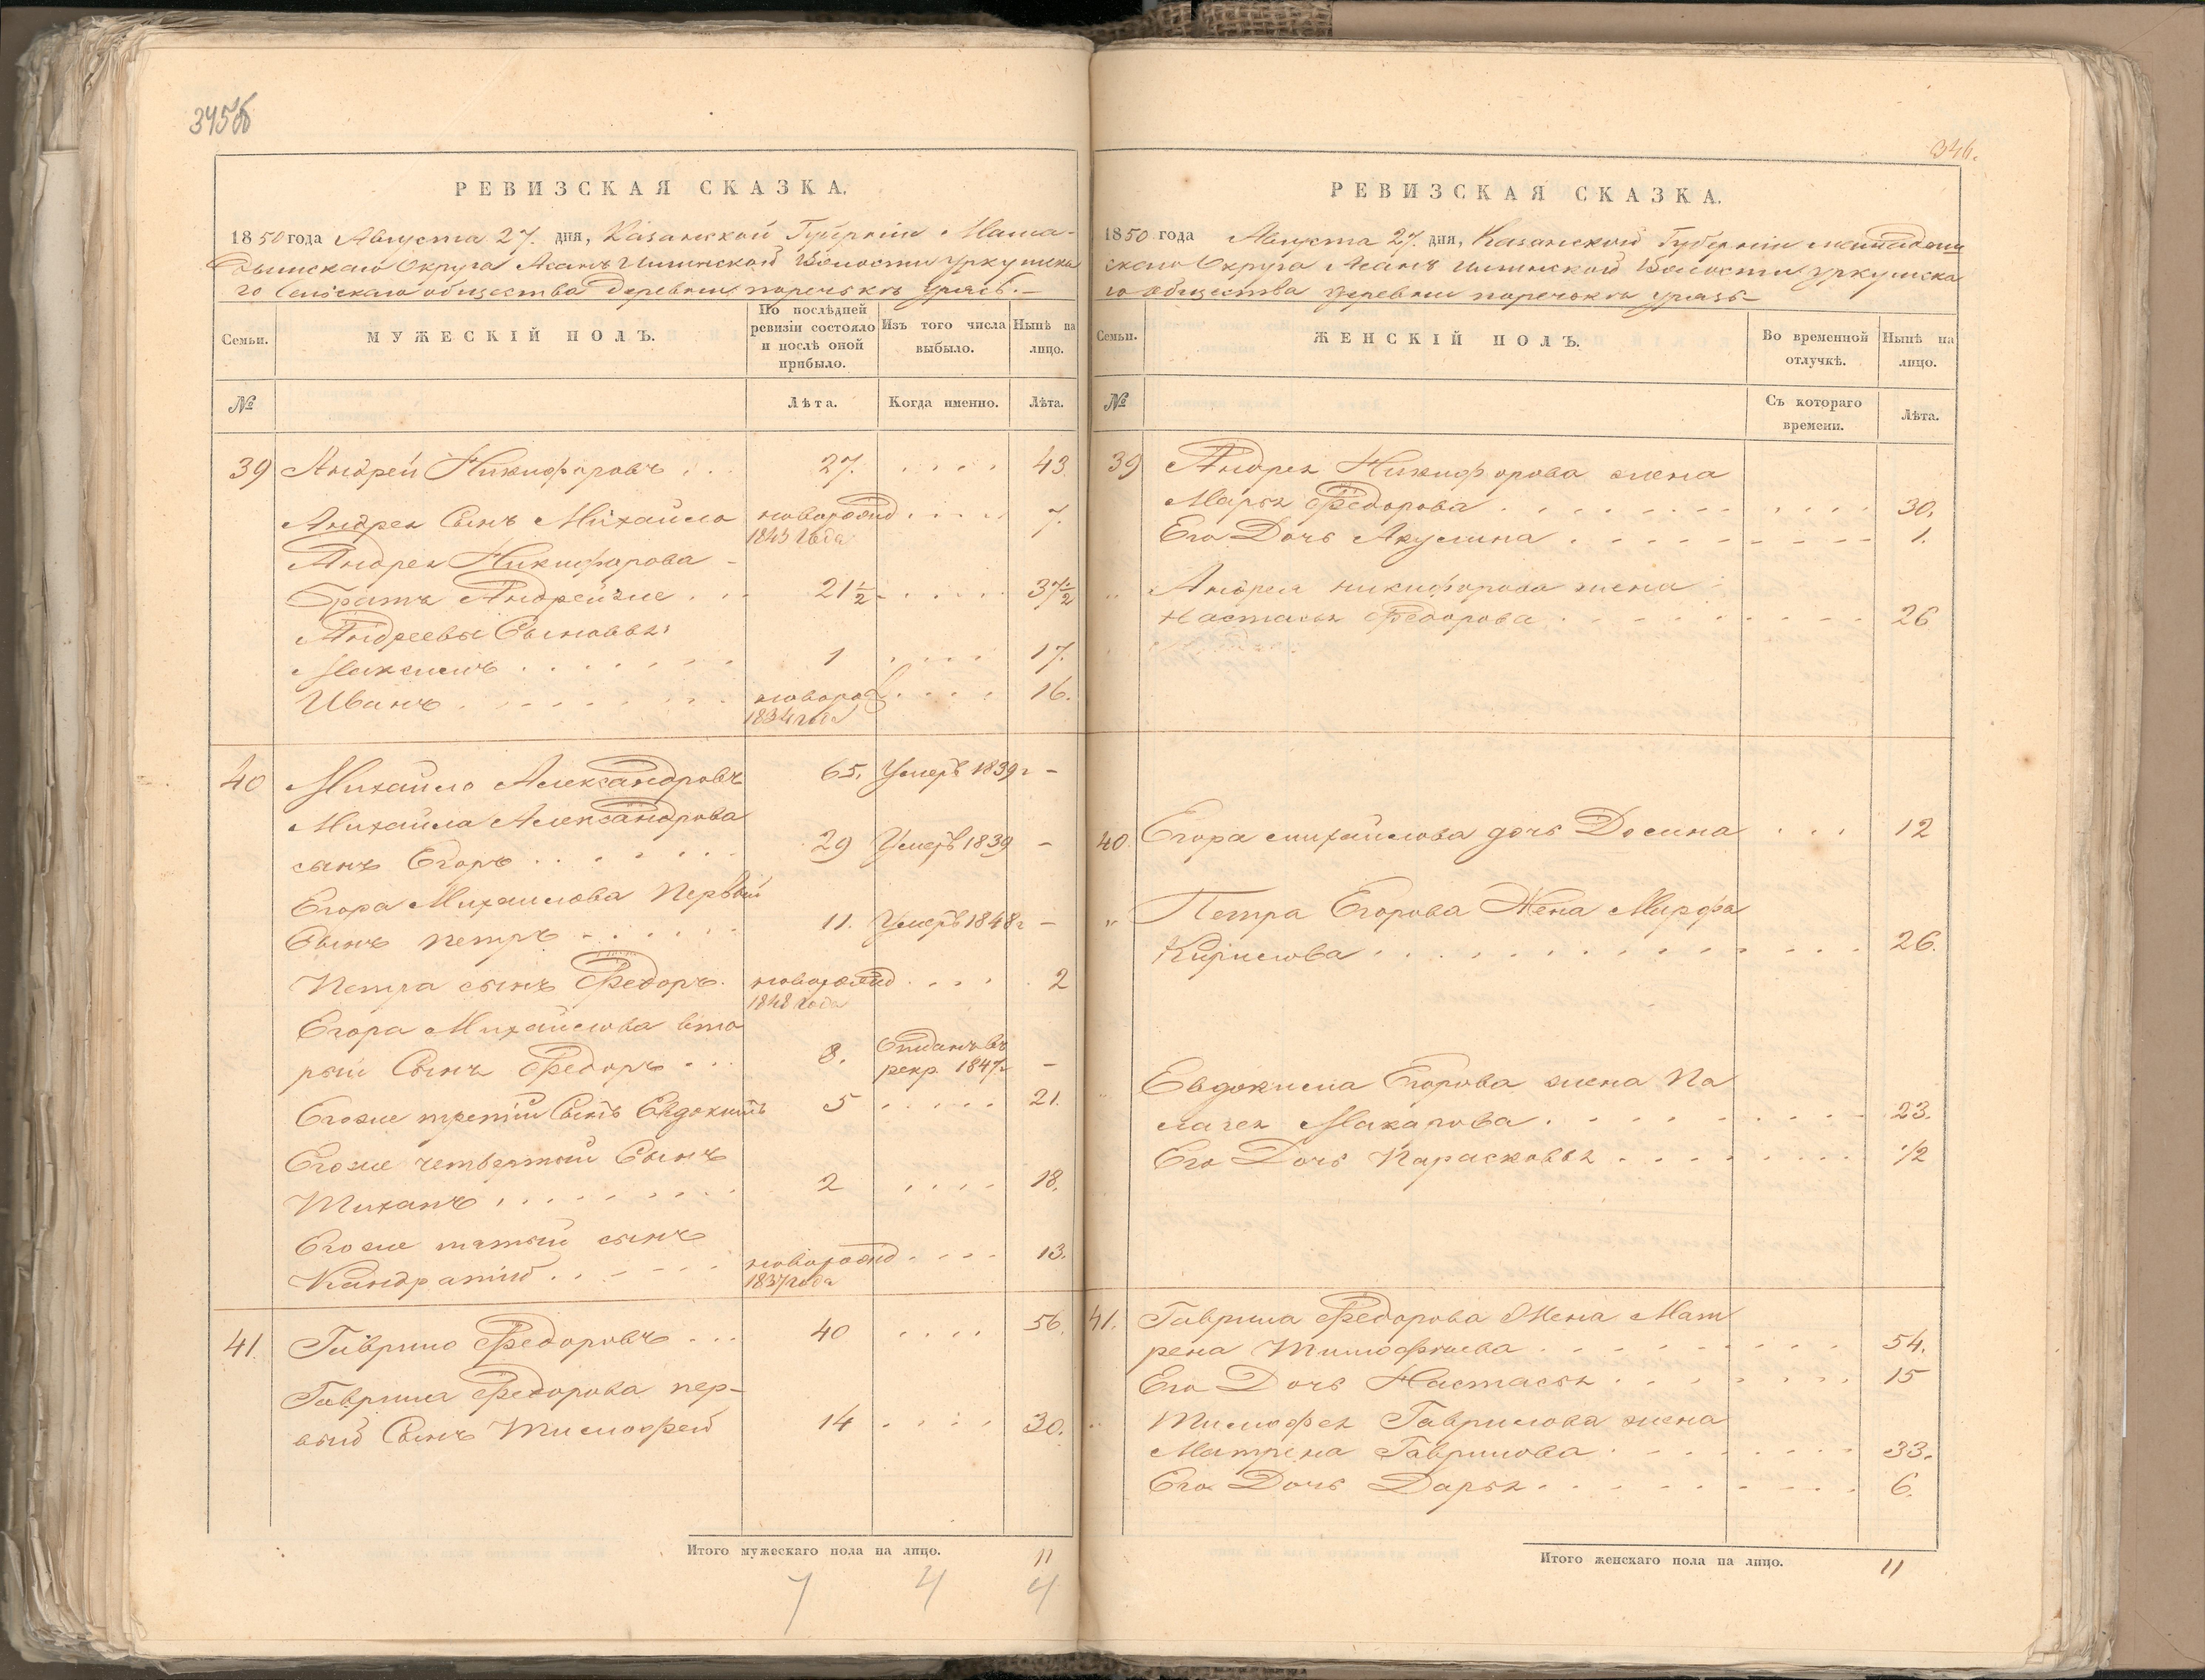 345об
РЕВИЗСКАЯ СКАЗКА.
1850 года Августа 27. дня, Казанской Губерніи Мама-
дышскаго Округа Асанъ Илинской Волости Уркушска
го Сельскаго общества деревни поречьки Уразъ.-
Семьи.
МУЖЕСКІЙ ПОЛЪ.
По послѣдней ревизіи состояло и послѣ оной прибыло.
Изъ того числа выбыло.
Нынѣ на лицо.
№
Лѣта.
Когда именно.
Лѣта.
39 Андрей Никифоровъ . . . 27. . . . . 43.
Андрея Сынъ Михайло новорожд . . . . 7.
1843 года
Андрея Никифорова -
братъ Андрейже . . . 21½ . . . . . 37½
Андреевы Сыновья
Максимъ . . . . . . . 1 . . . . 17.
Иванъ . . . . . . . . новорож . . . . 16.
1834 года
40 Михайло Александровъ 65. Умеръ 1839 г -
Михайла Александрова
сынъ Егоръ . . . . . . . 29 Умеръ 1839 -
Егора Михаилова Первый
Сынъ петръ . . . . . . 11. Умеръ 1848 г -
Петра сынъ Федоръ. новорожд . . . . 2
1848 года
Егора Михайлова вто
рый Сынъ Федоръ . . . 8. Отданъ въ
рекр 1847 г -
Егоже третій Сынъ Евдокимъ 5 . . . . . 21.
Егоже четвертый Сынъ
Тиханъ . . . . . . . . 2 . . . . 18.
Егоже пятый сынъ
Кандратий . . - - - . новорожд . . . . 13.
1837 года
41. Гаврило Федоровъ . . . 40 . . . . 56.
Гаврила Федорова пер-
вый Сынъ Тимофей 14 . . . . 30.
Итого мужескаго пола на лицо. 11
7 4 4
346.
РЕВИЗСКАЯ СКАЗКА.
1850 года Августа 27. дня, Казанской Губерніи мамадыш
скаго Округа Асанъ Илинской Волости Уркушска
го общества деревни поречьки Уразъ-
Семьи.
ЖЕНСКІЙ ПОЛЪ.
Во временной отлучкѣ.
Нынѣ на лицо.
№
Съ котораго времени.
Лѣта.
39 Андрея Никифорова жена
Марья Федорова . . . . . . . . . . . . 30.
Его Дочь Акулина . . . . . - - - - - 1.
" Андрея никифорова жена
Настасья Федорова . . . . . . . . . 26
40. Егора михайлова дочь Домна . . . 12
" Петра Егорова Жена Марфа
Кирилова . . . . . . . . . . . . . 26.
" Евдокима Егорова жена Па
лагея Макарова . . . . . . . . . 23.
Его Дочь Парасковья . . . . . . . . ½
41. Гаврила Федорова Жена Мат
рена Тимофиева . . . . . . . . . 54.
Его Дочь Настасья . . . . . . . 15
" Тимофея Гаврилова жена
Матрена Гаврилова . . . . . . . . 33.
Его Дочь Дарья . . . . . . . . . . 6.
Итого женскаго пола на лицо. 11